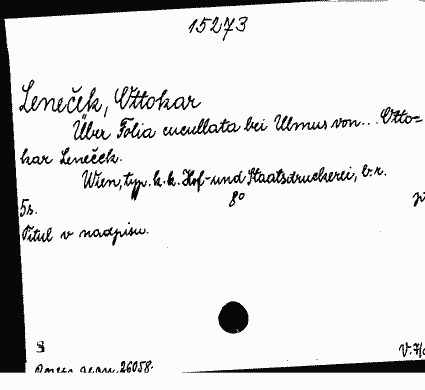 15273
Leneček, Ottokar
Über Folia cucullata bei Ulmus von... Otto=
kar Leneček.
Wien, typ. k. k. Hof- und Staatsdruckerei, b. r.
5s. 8°
Titul v nadpisu.
8 V.
26058.